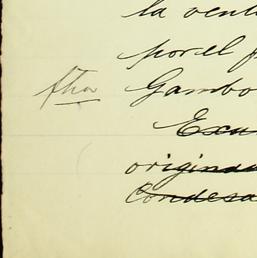 la vent
por el p
fha Gambo
Excu
origina
Condesa